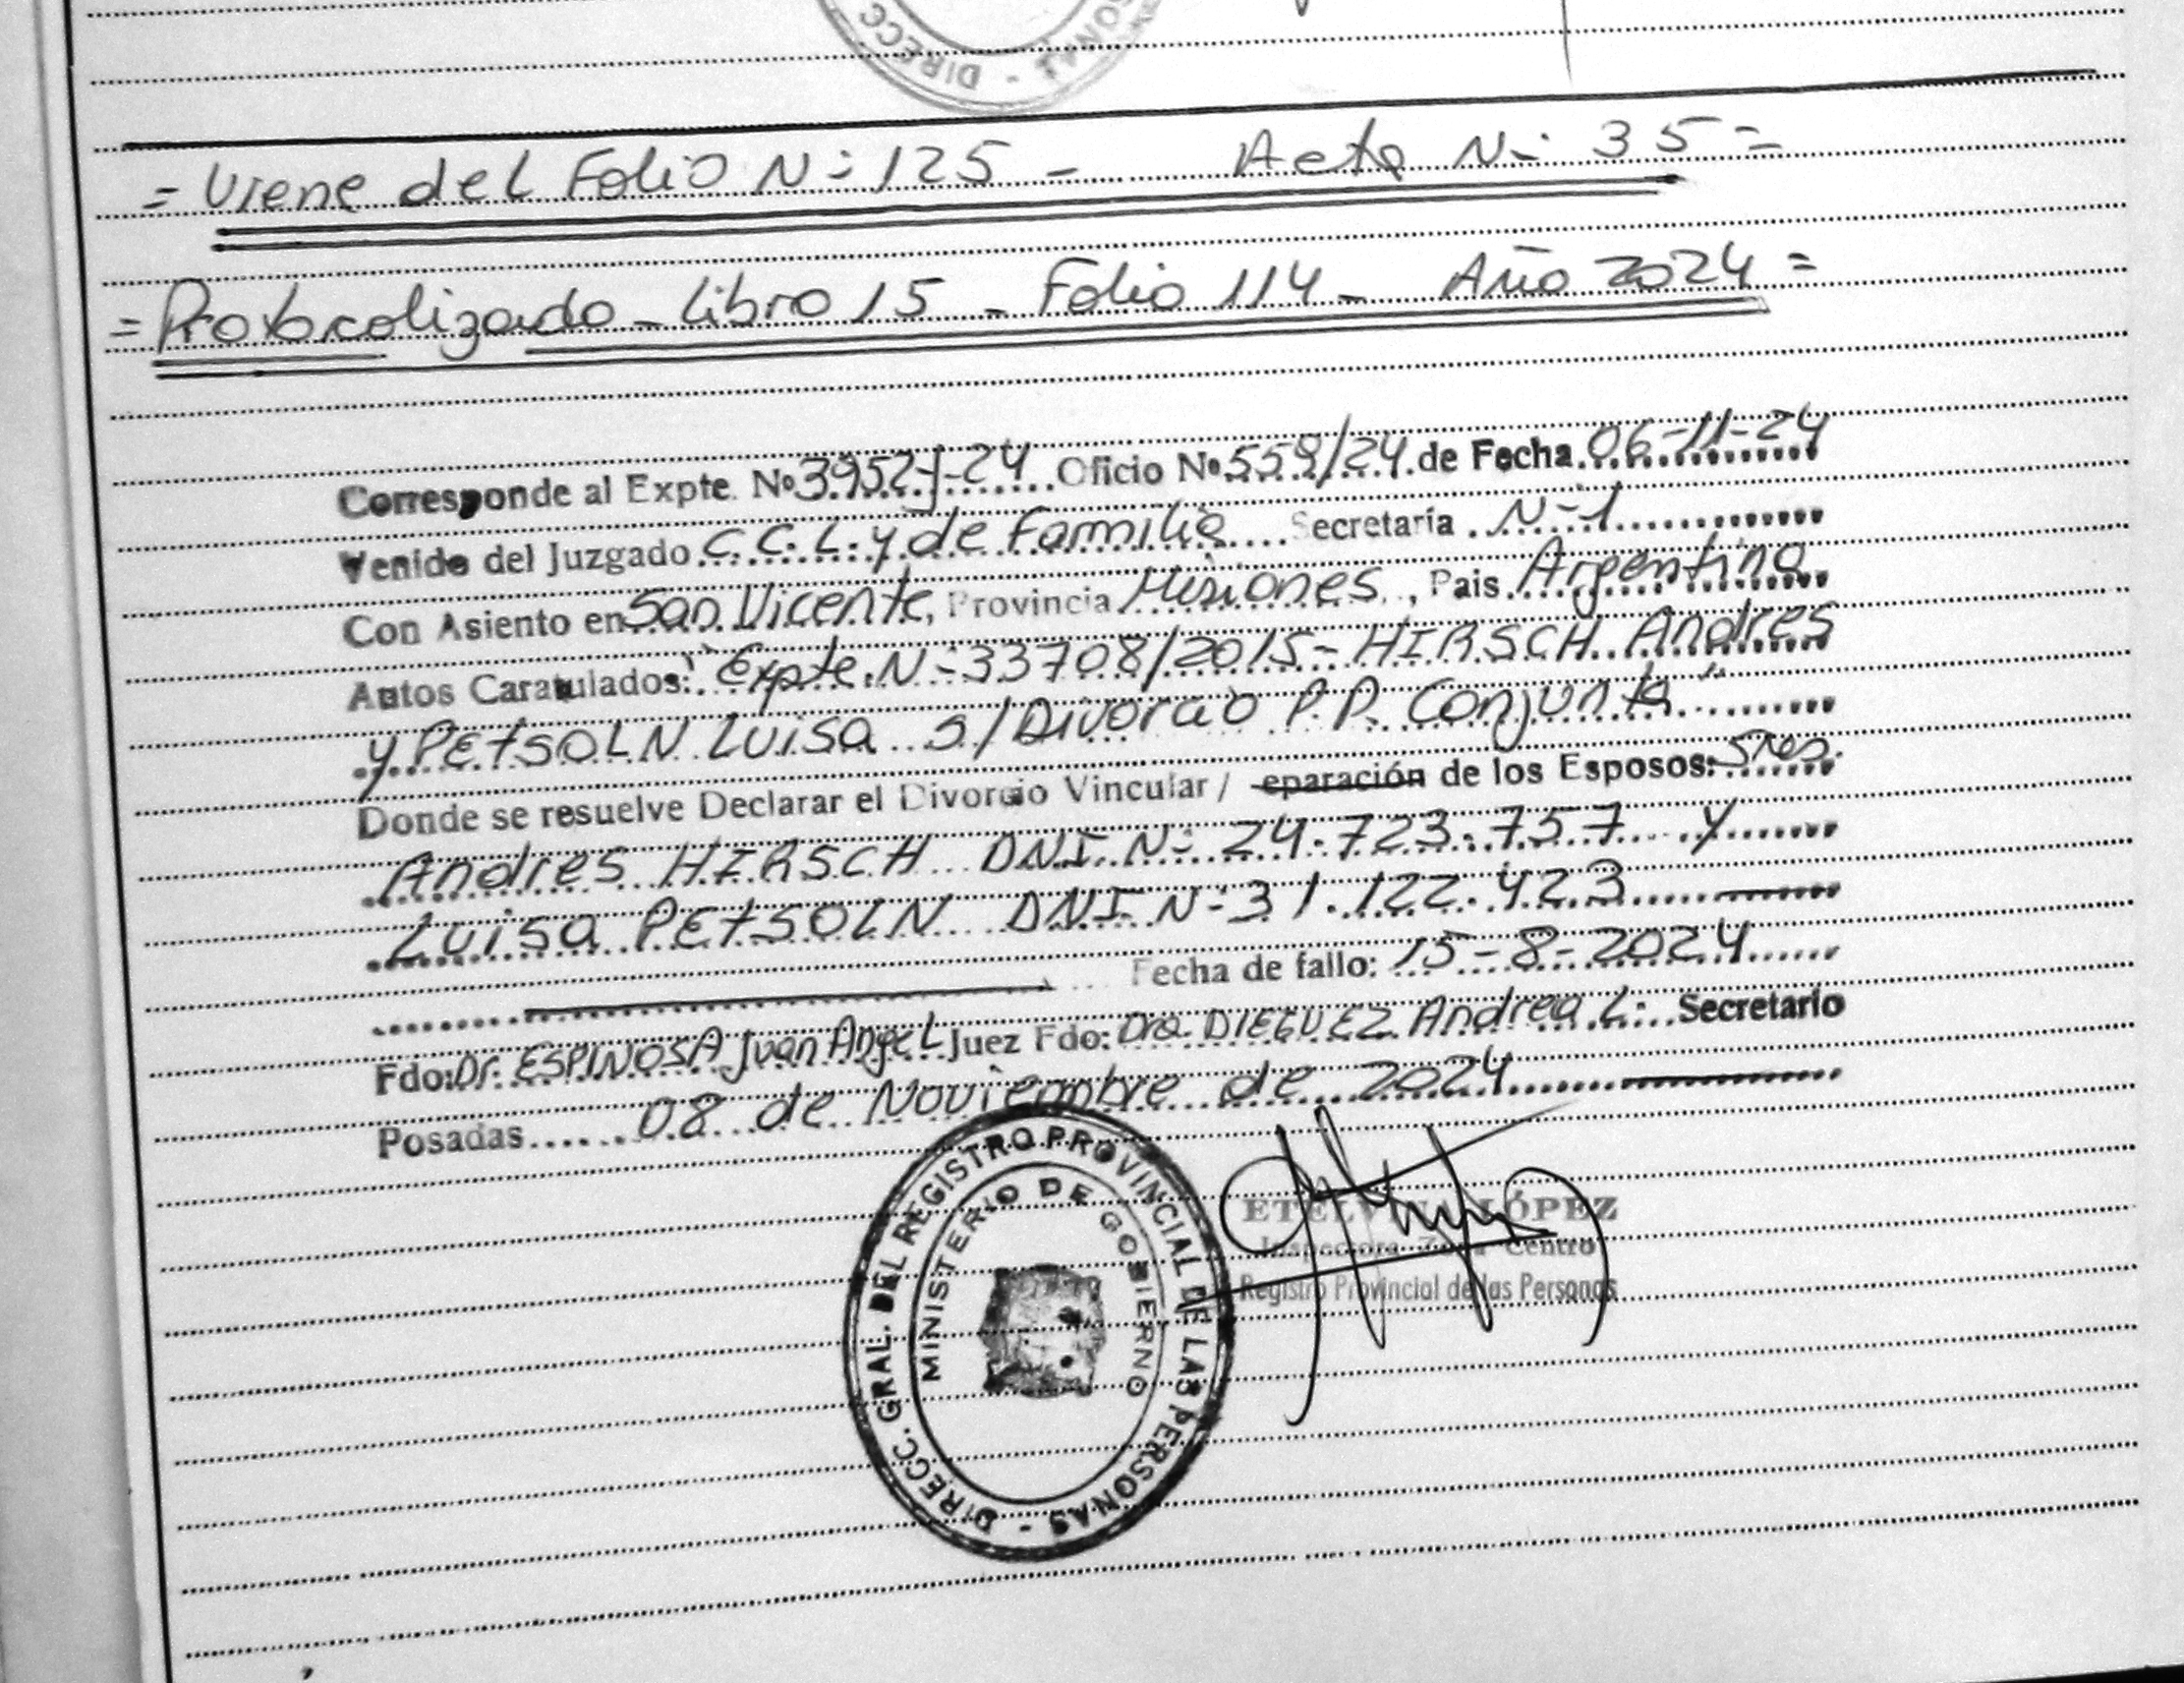 DIRECC
SONAS - DIRECC
= Viene del Folio N=: 125 - Acta N=: 35 =
= Protocolizado - Libro 15 - Folio 114 - Año 2024 =
Corresponde al Expte. Nº 3952-J-24 Oficio Nº 559/24 de Fecha 06-11-24
Venido del Juzgado C. C. L. y de Familia Secretaría N=1
Con Asiento en San Vicente, Provincia Misiones, Pais Argentina
Autos Caratulados: "Expte. N=33708/2015- HIRSCH Andres
y PETSOLN LUISA s/ Divorcio P.P. Conjunta"
Donde se resuelve Declarar el Divorcio Vincular / eparación de los Esposos: Sres.
Andres HIRSCH DNI N= 24.723.757 y
Luisa PETSOLN DNI N= 31.122.423
Fecha de fallo: 15-8-2024
Fdo: Dr. ESPINOSA Juan Angel Juez Fdo: Dra. DIEGUEZ Andrea L. Secretario
Posadas 08 de Noviembre de 2024
DIRECC. GRAL. DEL REGISTRO PROVINCIAL DE LAS PERSONAS -
MINISTERIO DE GOBIERNO
ETELVINA LÓPEZ
Inspectora Zona Centro
Registro Provincial de las Personas